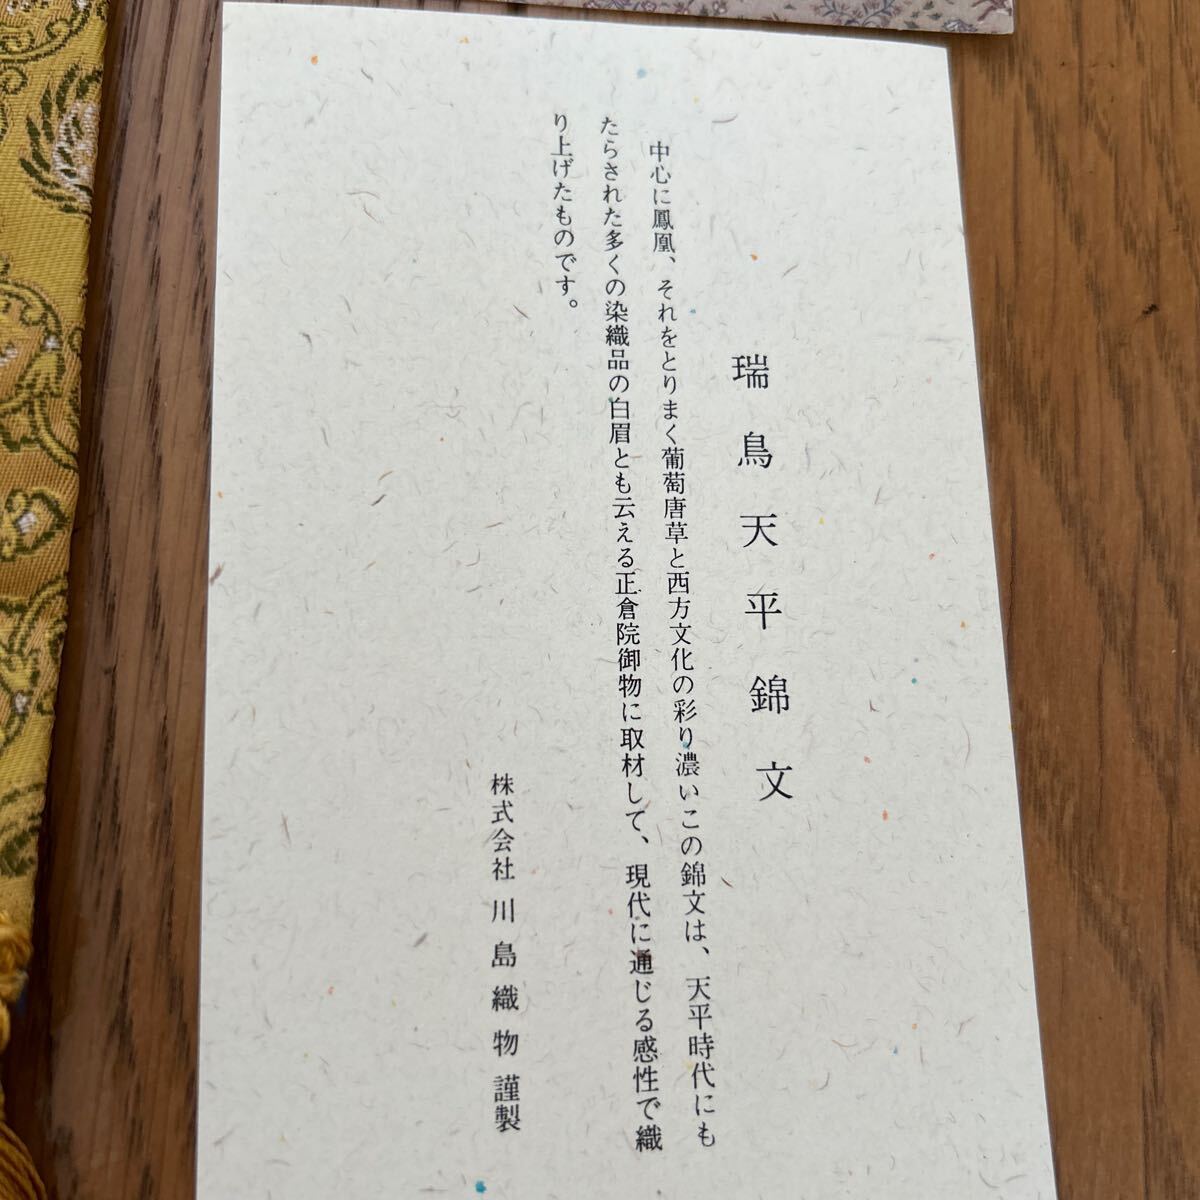 瑞鳥天平錦文
中心に鳳凰、それをとりまく葡萄唐草と西方文化の彩り濃いこの錦文は、天平時代にも
たらされた多くの染織品の白眉とも云える正倉院御物に取材して、現代に通じる感性で織
り上げたものです。
株式会社 川島織物 謹製